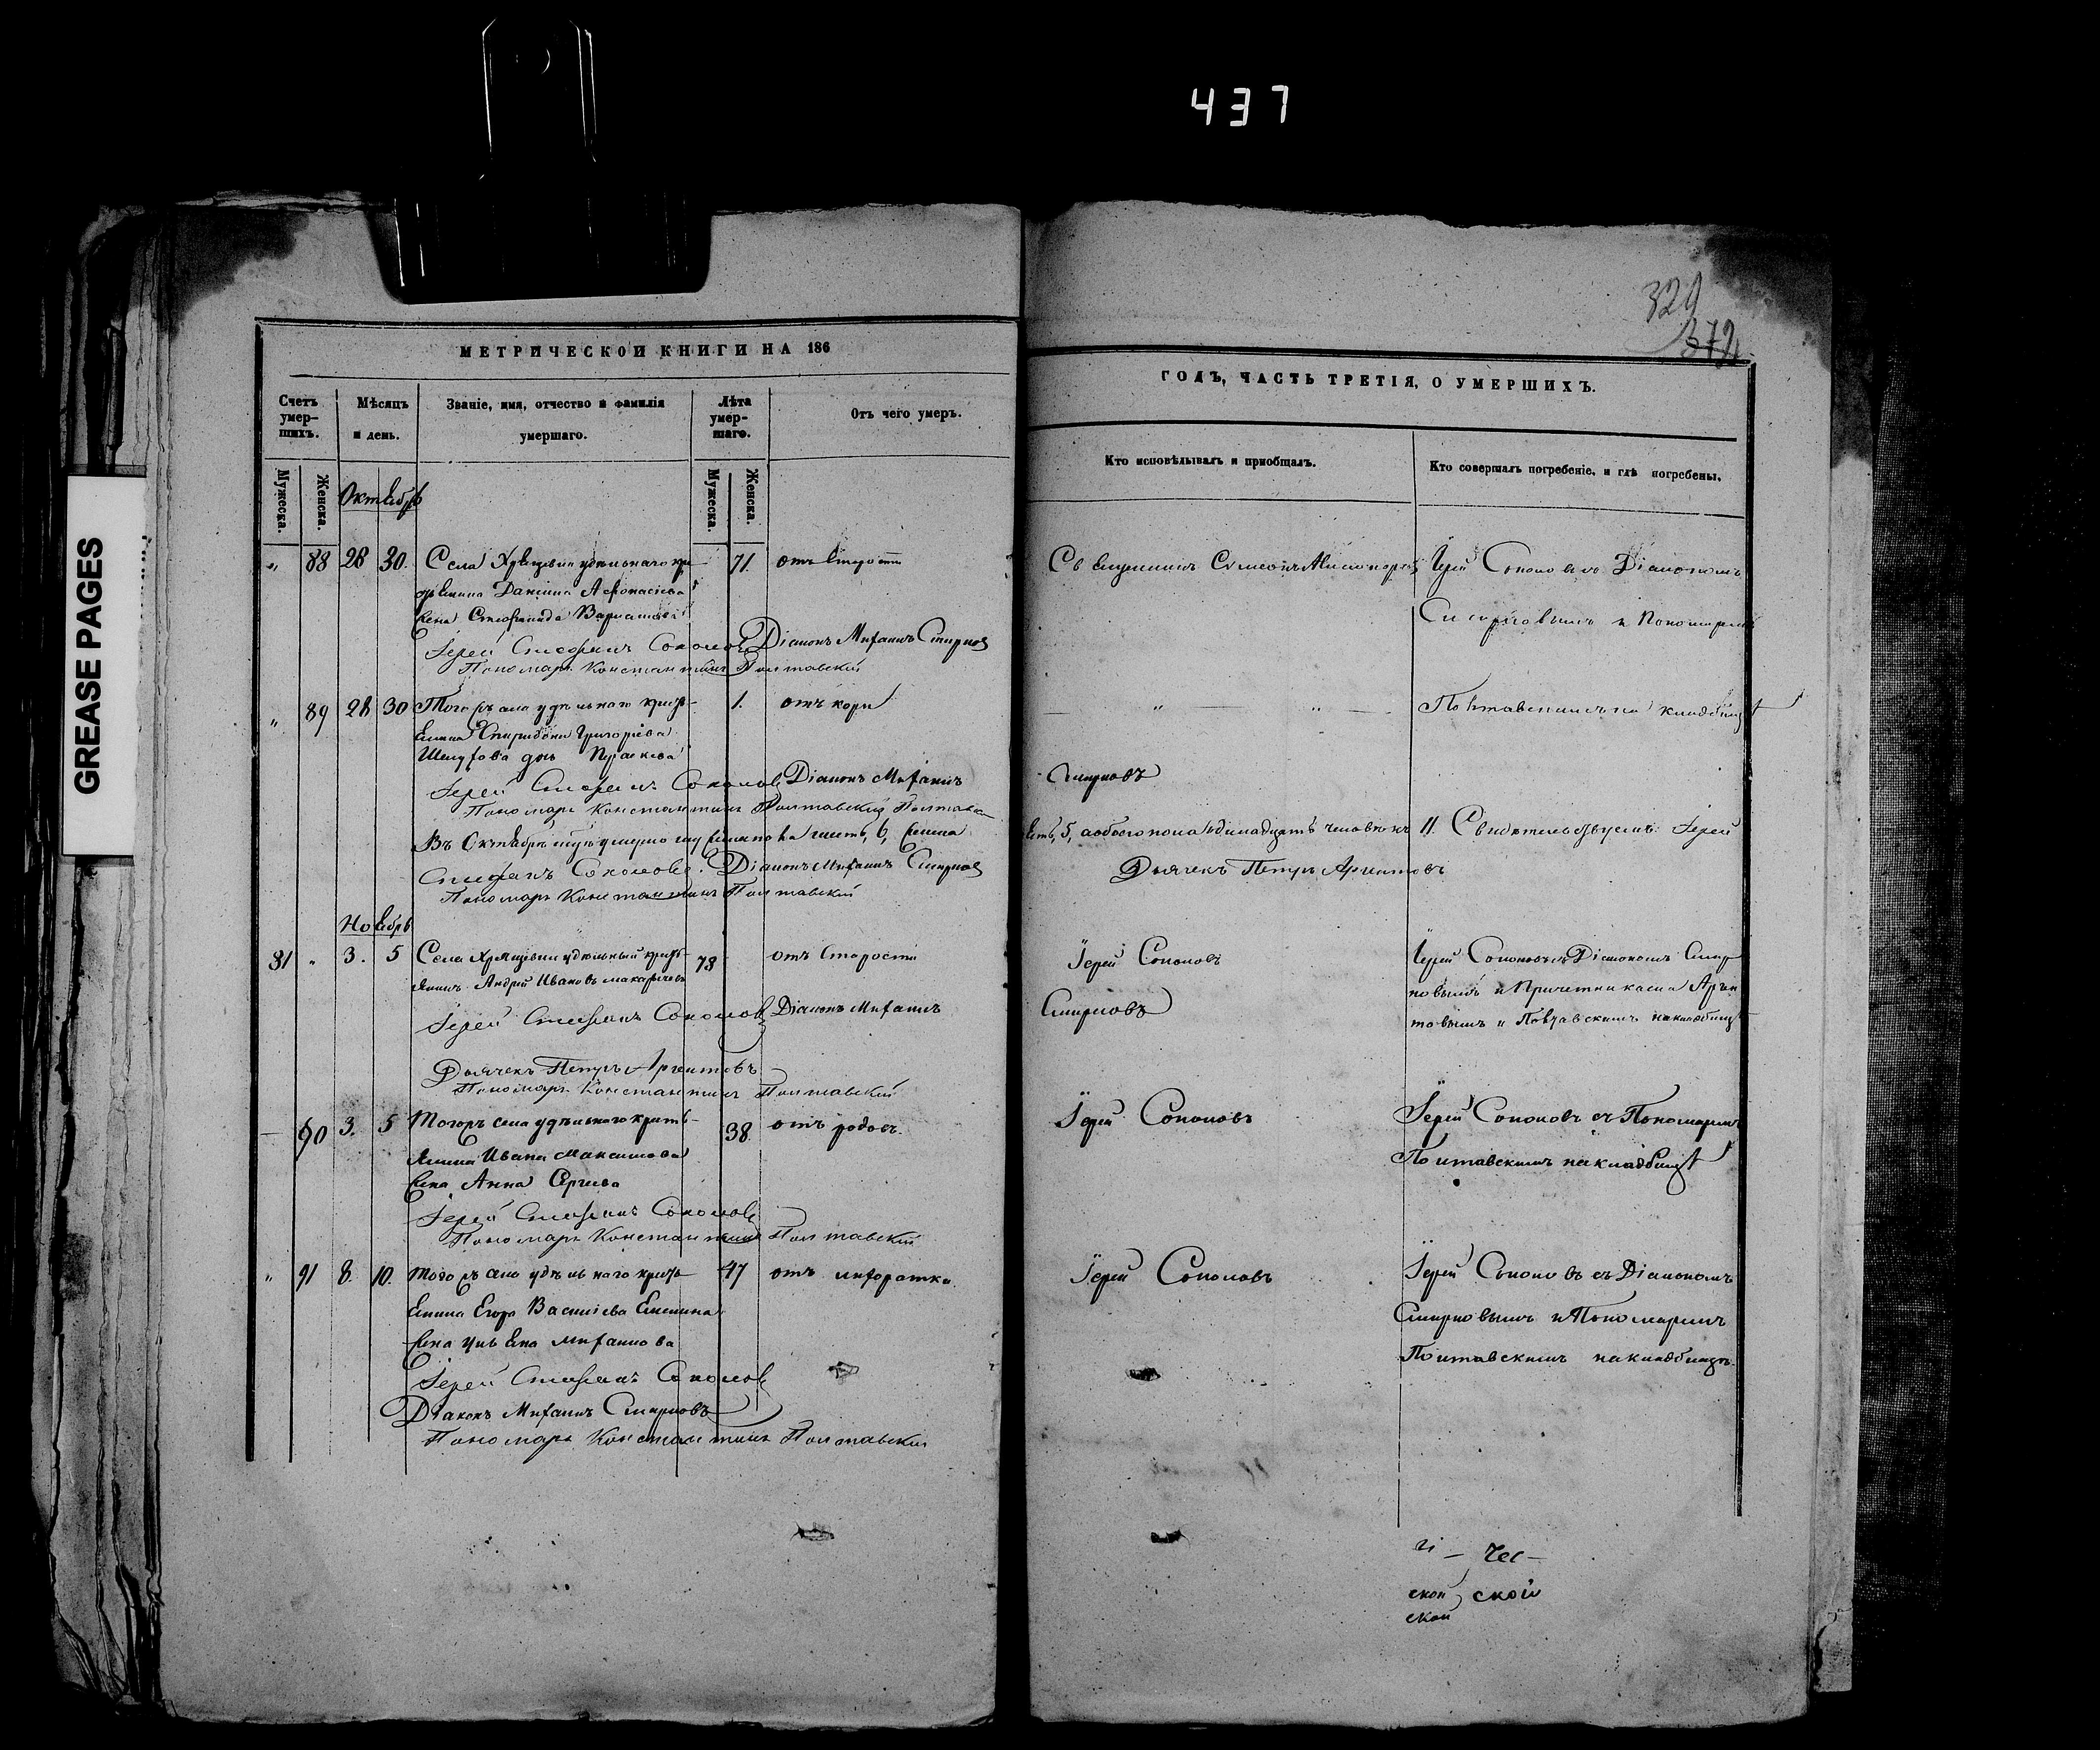 437
GREASE PAGES
329
372
МЕТРИЧЕСКОЙ КНИГИ НА 186
ГОДЪ, ЧАСТЬ ТРЕТІЯ, О УМЕРШИХЪ.
Счетъ умер-шихъ.
Мѣсяцъ и день.
Званіе, имя, отчество и фамилія умершаго.
Лѣта умер-шаго.
Отъ чего умеръ.
Кто исповѣдывалъ и пріобщалъ.
Кто совершалъ погребеніе, и гдѣ погребены.
Мужеска.
Женска.
Мужеска.
Женска.
Октябрь
„ 88 28 30. Села Хрящевки удѣльнаго кре 71. отъ старости
стьянина Даніила Афонасьева
жена Степанида
Іерей Стефанъ Соколовъ Діаконъ Михаилъ Смирновъ
Пономарь Константинъ Полтавскій
Іерей Соколовъ съ Діакономъ
Смирновымъ и Пономаремъ
„ 89 28 30 Тогожъ села удѣльнаго кресть- 1. отъ кори
янина Спиридона Григорьева
дочь
Іерей Стефанъ Соколовъ Діаконъ Михаилъ
Смирновъ
Пономарь Константинъ Полтавскій
Полтавскимъ на кладбищѣ
Въ Октябрѣ
5, а обоего пола одинадцать человѣкъ 11. Свидѣтельствуемъ: Іерей
Стефанъ Соколовъ. Діаконъ Михаилъ Смирновъ
Дьячекъ Петръ Аргентовъ
Пономарь Константинъ Полтавскій
Ноябрь
31 „ 3. 5 Села Хрящевки удѣльный кресть- 73 отъ старости
янинъ Андрей Ивановъ Макарычевъ
Іерей Соколовъ
Іерей Соколовъ съ Діакономъ Смир
новымъ и Причетниками Арген
товымъ и Полтавскимъ на кладбищѣ
Іерей Стефанъ Соколовъ Діаконъ Михаилъ
Смирновъ
Дьячекъ Петръ Аргентовъ
Пономарь Константинъ Полтавскій
— 90 3. 5 Тогожъ села удѣльнаго кресть- 38 отъ родовъ.
янина Ивана Максимова
жена Анна Сергѣева
Іерей Соколовъ
Іерей Соколовъ съ Пономаремъ
Полтавскимъ на кладбищѣ
Іерей Стефанъ Соколовъ
Пономарь Константинъ Полтавскій
„ 91 8. 10. Тогожъ села удѣльнаго кресть- 47 отъ лихоратки
янина Егора Васильева
жена Ульяна Михайлова
Іерей Соколовъ
Іерей Соколовъ съ Діакономъ
Смирновымъ и Пономаремъ
Полтавскимъ на кладбищѣ.
Іерей Стефанъ Соколовъ
Діаконъ Михаилъ Смирновъ
Пономарь Константинъ Полтавскій
чес-
ской ской
ской